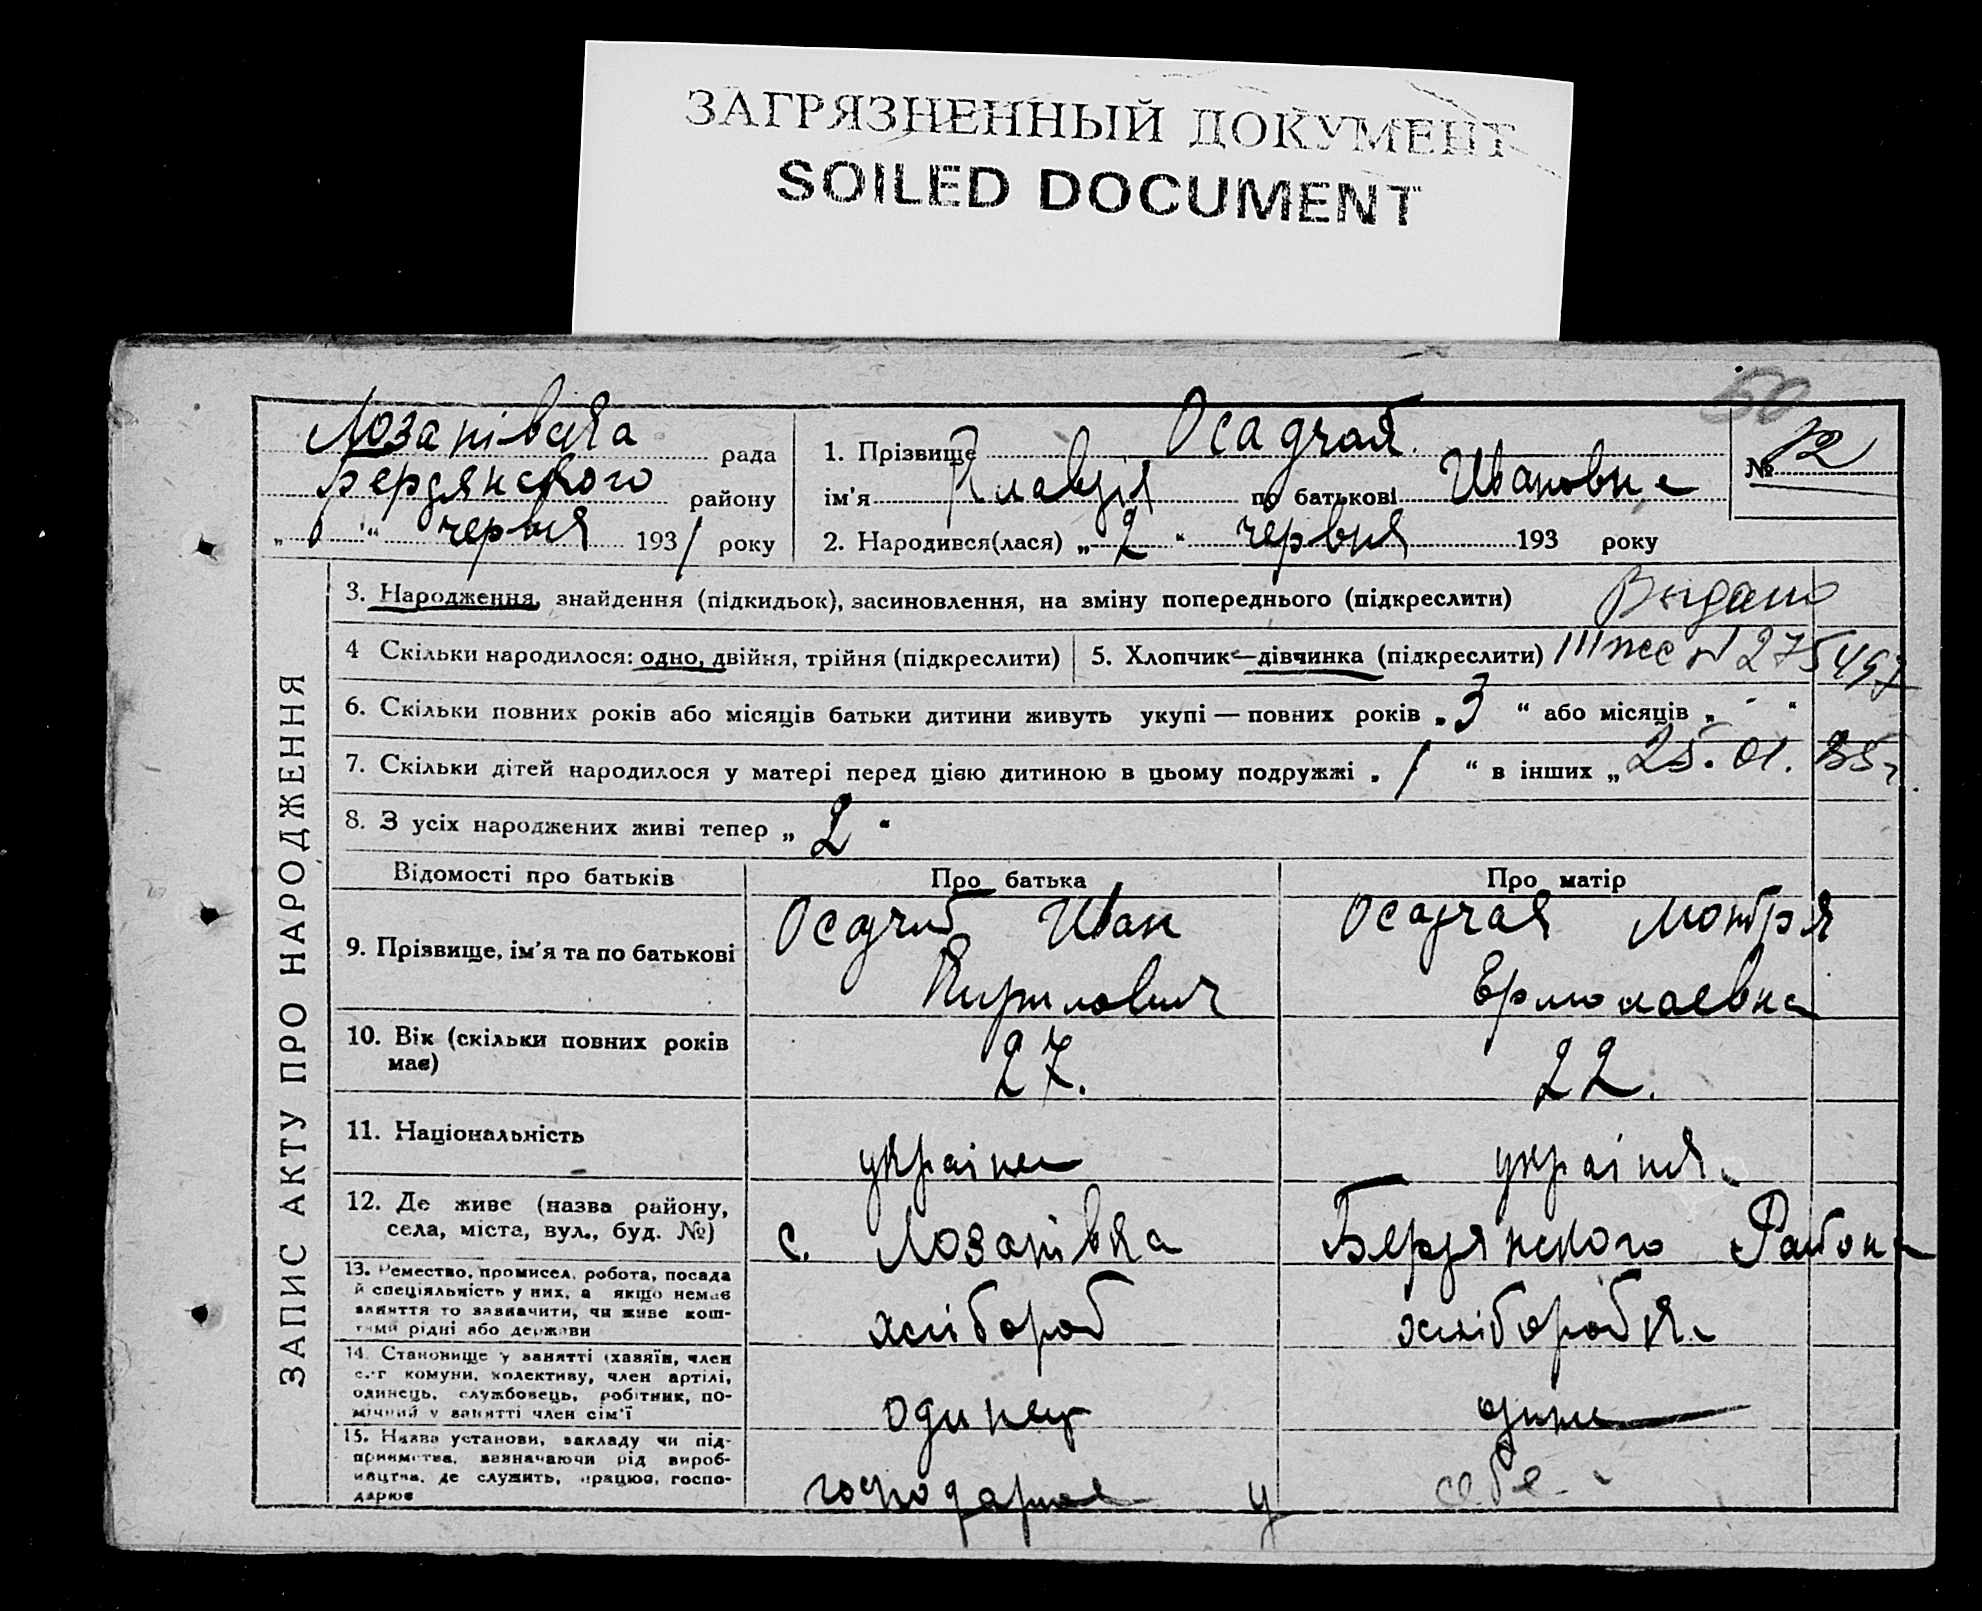 ЗАГРЯЗНЕННЫЙ ДОКУМЕНТ
SOILED DOCUMENT
50
Лозанівська рада
Бердянского району
" " червня 1931 року
1. Прізвище Осадчая
ім'я Клавдія по батькові Ивановна
№ 12
2. Народився(лася) „ 2 " червня 193 року
ЗАПИС АКТУ ПРО НАРОДЖЕННЯ
3. Народження, знайдення (підкидьок), засиновлення, на зміну попереднього (підкреслити)
Видано
4 Скільки народилося: одно, двійня, трійня (підкреслити)
5. Хлопчик—дівчинка (підкреслити)
N 275497
6. Скільки повних років або місяців батьки дитини живуть укупі — повних років „ 3 " або місяців „ - "
7. Скільки дітей народилося у матері перед цією дитиною в цьому подружжі „ 1 " в інших „
25.01.
8. З усіх народжених живі тепер „ 2 "
Відомості про батьків Про батька Про матір
9. Прізвище, ім'я та по батькові
Осадчий Иван
Кирилович
Осадчая Мотря
Ермолаевна
10. Вік (скільки повних років
має)
27.
22.
11. Національність
українец
12. Де живе (назва району,
села, міста, вул., буд. №)
с. Лозанівка
Бердянского Района
13. Ремество, промисел, робота, посада
й спеціяльність у них, а якщо немає
заняття то зазначити, чи живе кош-
тами рідні або держави
хлібороб
хліборобка
14. Становище у занятті (хазяїн, член
с.-г комуни, колективу, член артілі,
одинець, службовець, робітник, по-
мічний у занятті член сім'ї
одинец
15. Назва установи, закладу чи під-
приємства, зазначаючи рід вироб-
ництва, де служить, працює, госпо-
дарює
господарює у себе